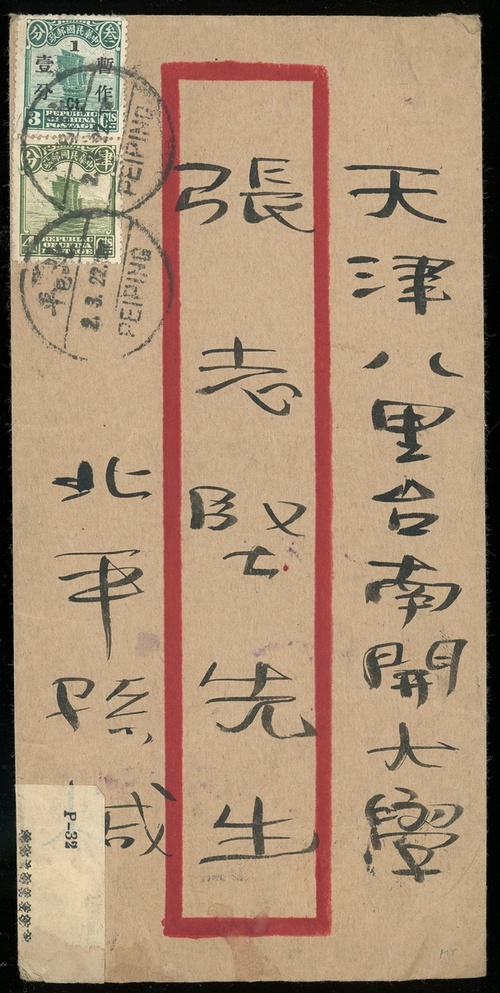 天津八里台南開大學
張志堅先生
北平孫緘
叁分
中華民國郵政
暫作
壹分
1
Ct.
3 Cts
REPUBLIC
OF CHINA
POSTAGE
分
中華民國郵政
4 Cts
REPUBLIC
OF CHINA
POSTAGE
PEIPING
2.3.22.
PEIPING
P-32